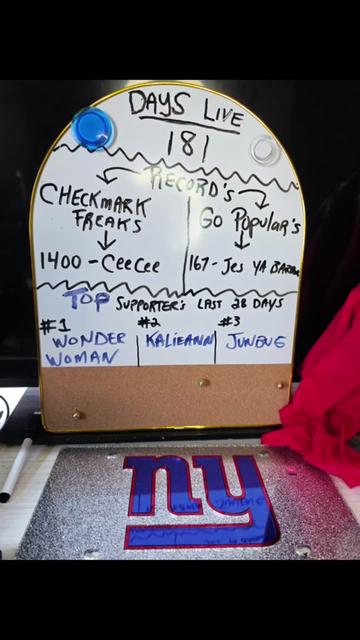 DAYS LIVE
181
RECORD'S
CHECKMARK
FREAKS
1400 - CeeCee
Go Popular's
167 - Jes YA
TOP SUPPORTER'S LAST 28 DAYS
#1 #2 #3
WONDER
WOMAN
KALIEANN
JUNEUG
ny